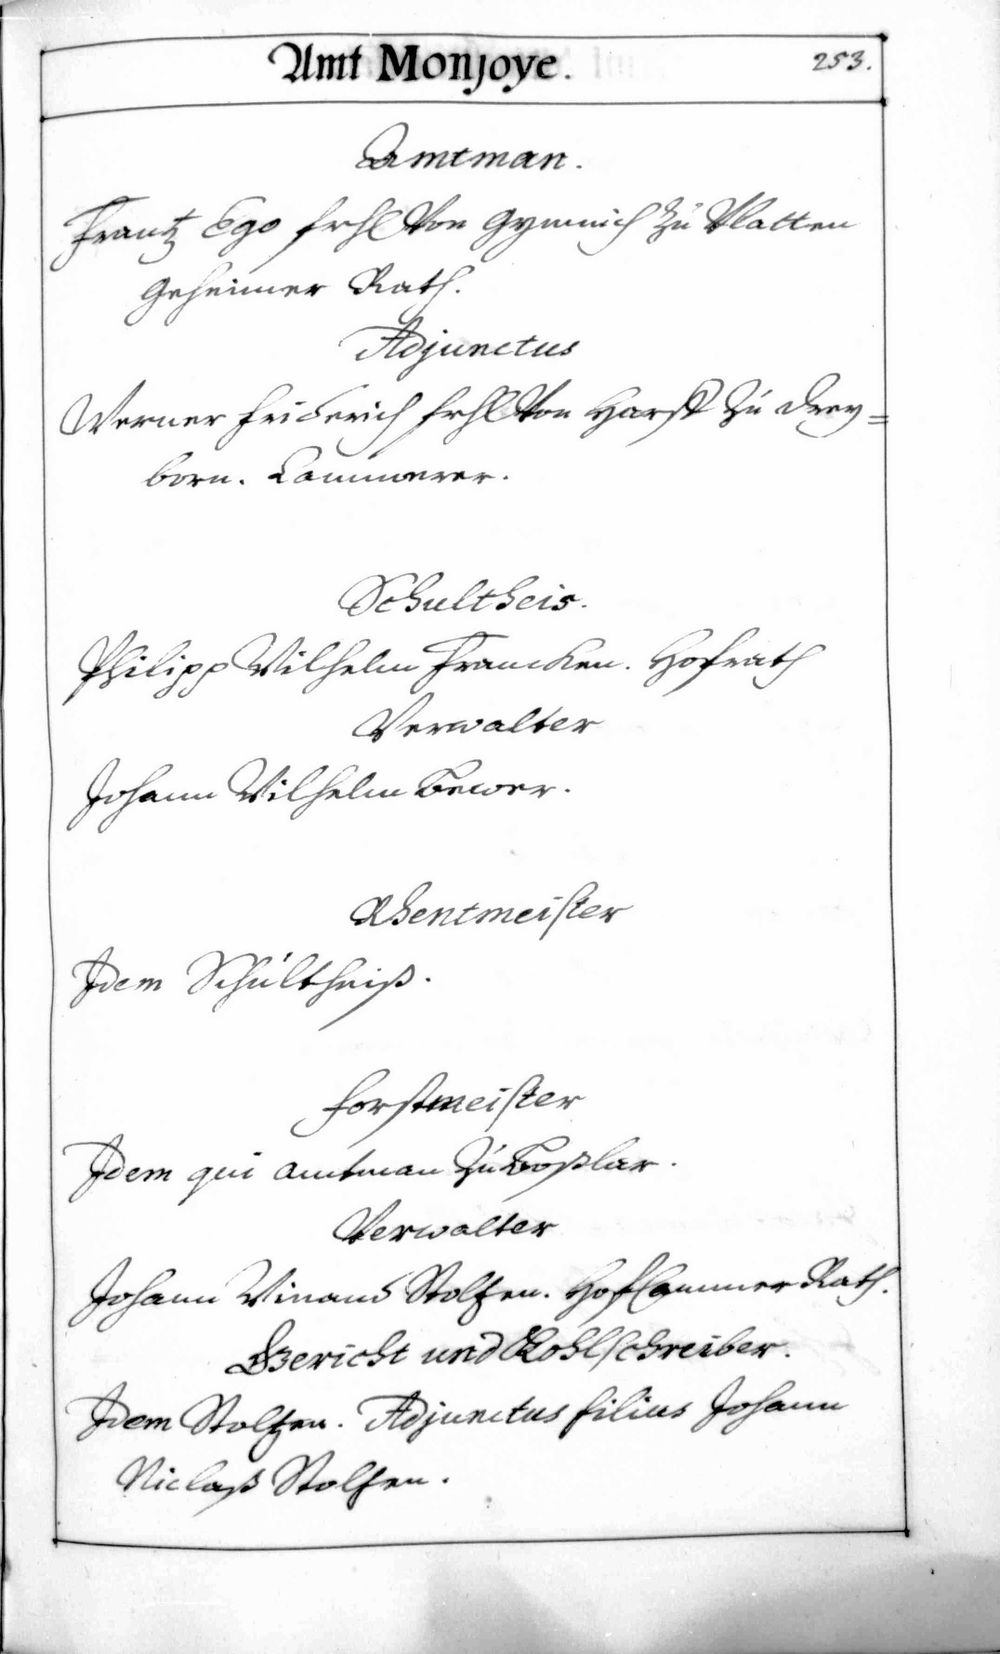 Amt Monjoye.
253.
Amtman.
Frantz Ego frhl Von Gymnich zu Vlatten
Geheimer Rath.
Adjunctus
Werner Friderich frhl Von Harff zu Drey=
born. Cammerer.
Schultheis.
Philipp Wilhelm Francken. Hofrath
Verwalter
Johann Wilhelm Bewer.
Rhentmeister
Idem Schultheiß.
Forstmeister
Idem qui Amtman zu Boßlar.
Verwalter
Johann Winand Stoltzen. HofCammer Rath.
Gericht und Kohlschreiber.
Idem Stoltzen. Adjunctus filius Johann
Niclaß Stoltzen.